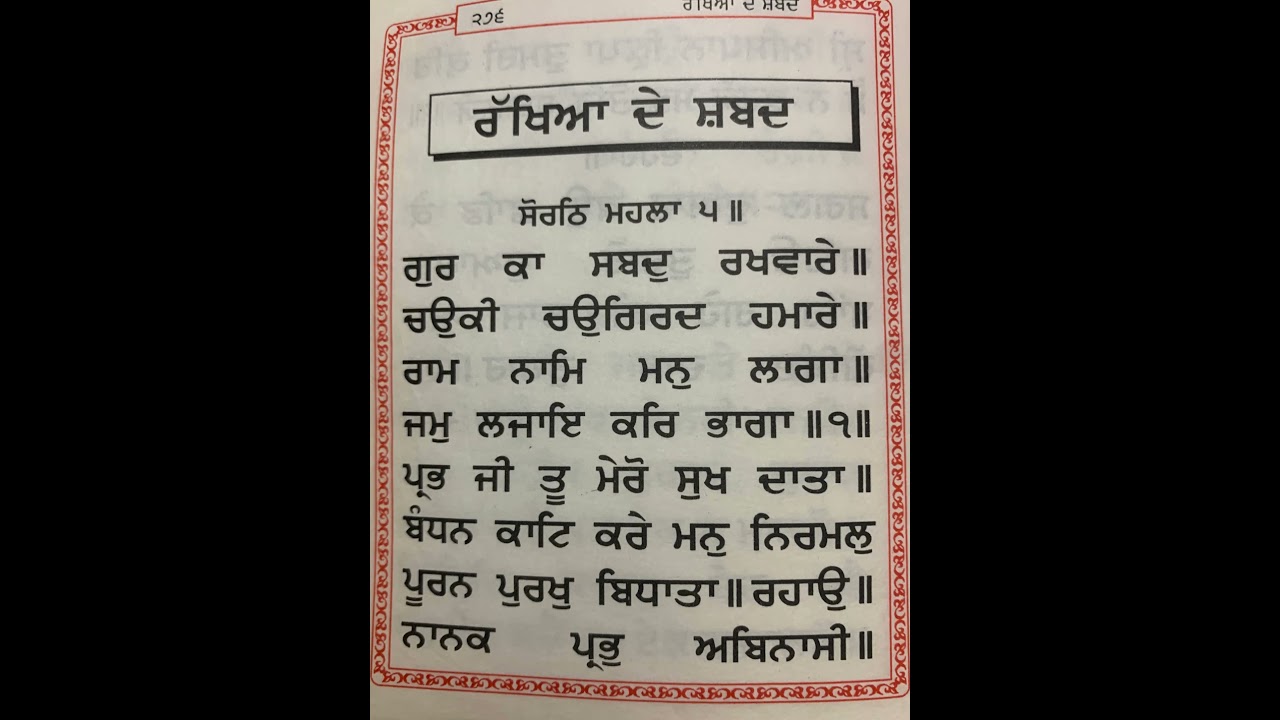 ੨੭੬ ਰੱਖਿਆ ਦੇ ਸ਼ਬਦ
ਰੱਖਿਆ ਦੇ ਸ਼ਬਦ
ਸੋਰਠਿ ਮਹਲਾ ੫॥
ਗੁਰ ਕਾ ਸਬਦੁ ਰਖਵਾਰੇ॥
ਚਉਕੀ ਚਉਗਿਰਦ ਹਮਾਰੇ॥
ਰਾਮ ਨਾਮਿ ਮਨੁ ਲਾਗਾ॥
ਜਮੁ ਲਜਾਇ ਕਰਿ ਭਾਗਾ॥੧॥
ਪ੍ਰਭ ਜੀ ਤੂ ਮੇਰੋ ਸੁਖ ਦਾਤਾ॥
ਬੰਧਨ ਕਾਟਿ ਕਰੇ ਮਨੁ ਨਿਰਮਲੁ
ਪੂਰਨ ਪੁਰਖੁ ਬਿਧਾਤਾ॥ ਰਹਾਉ॥
ਨਾਨਕ ਪ੍ਰਭੁ ਅਬਿਨਾਸੀ॥